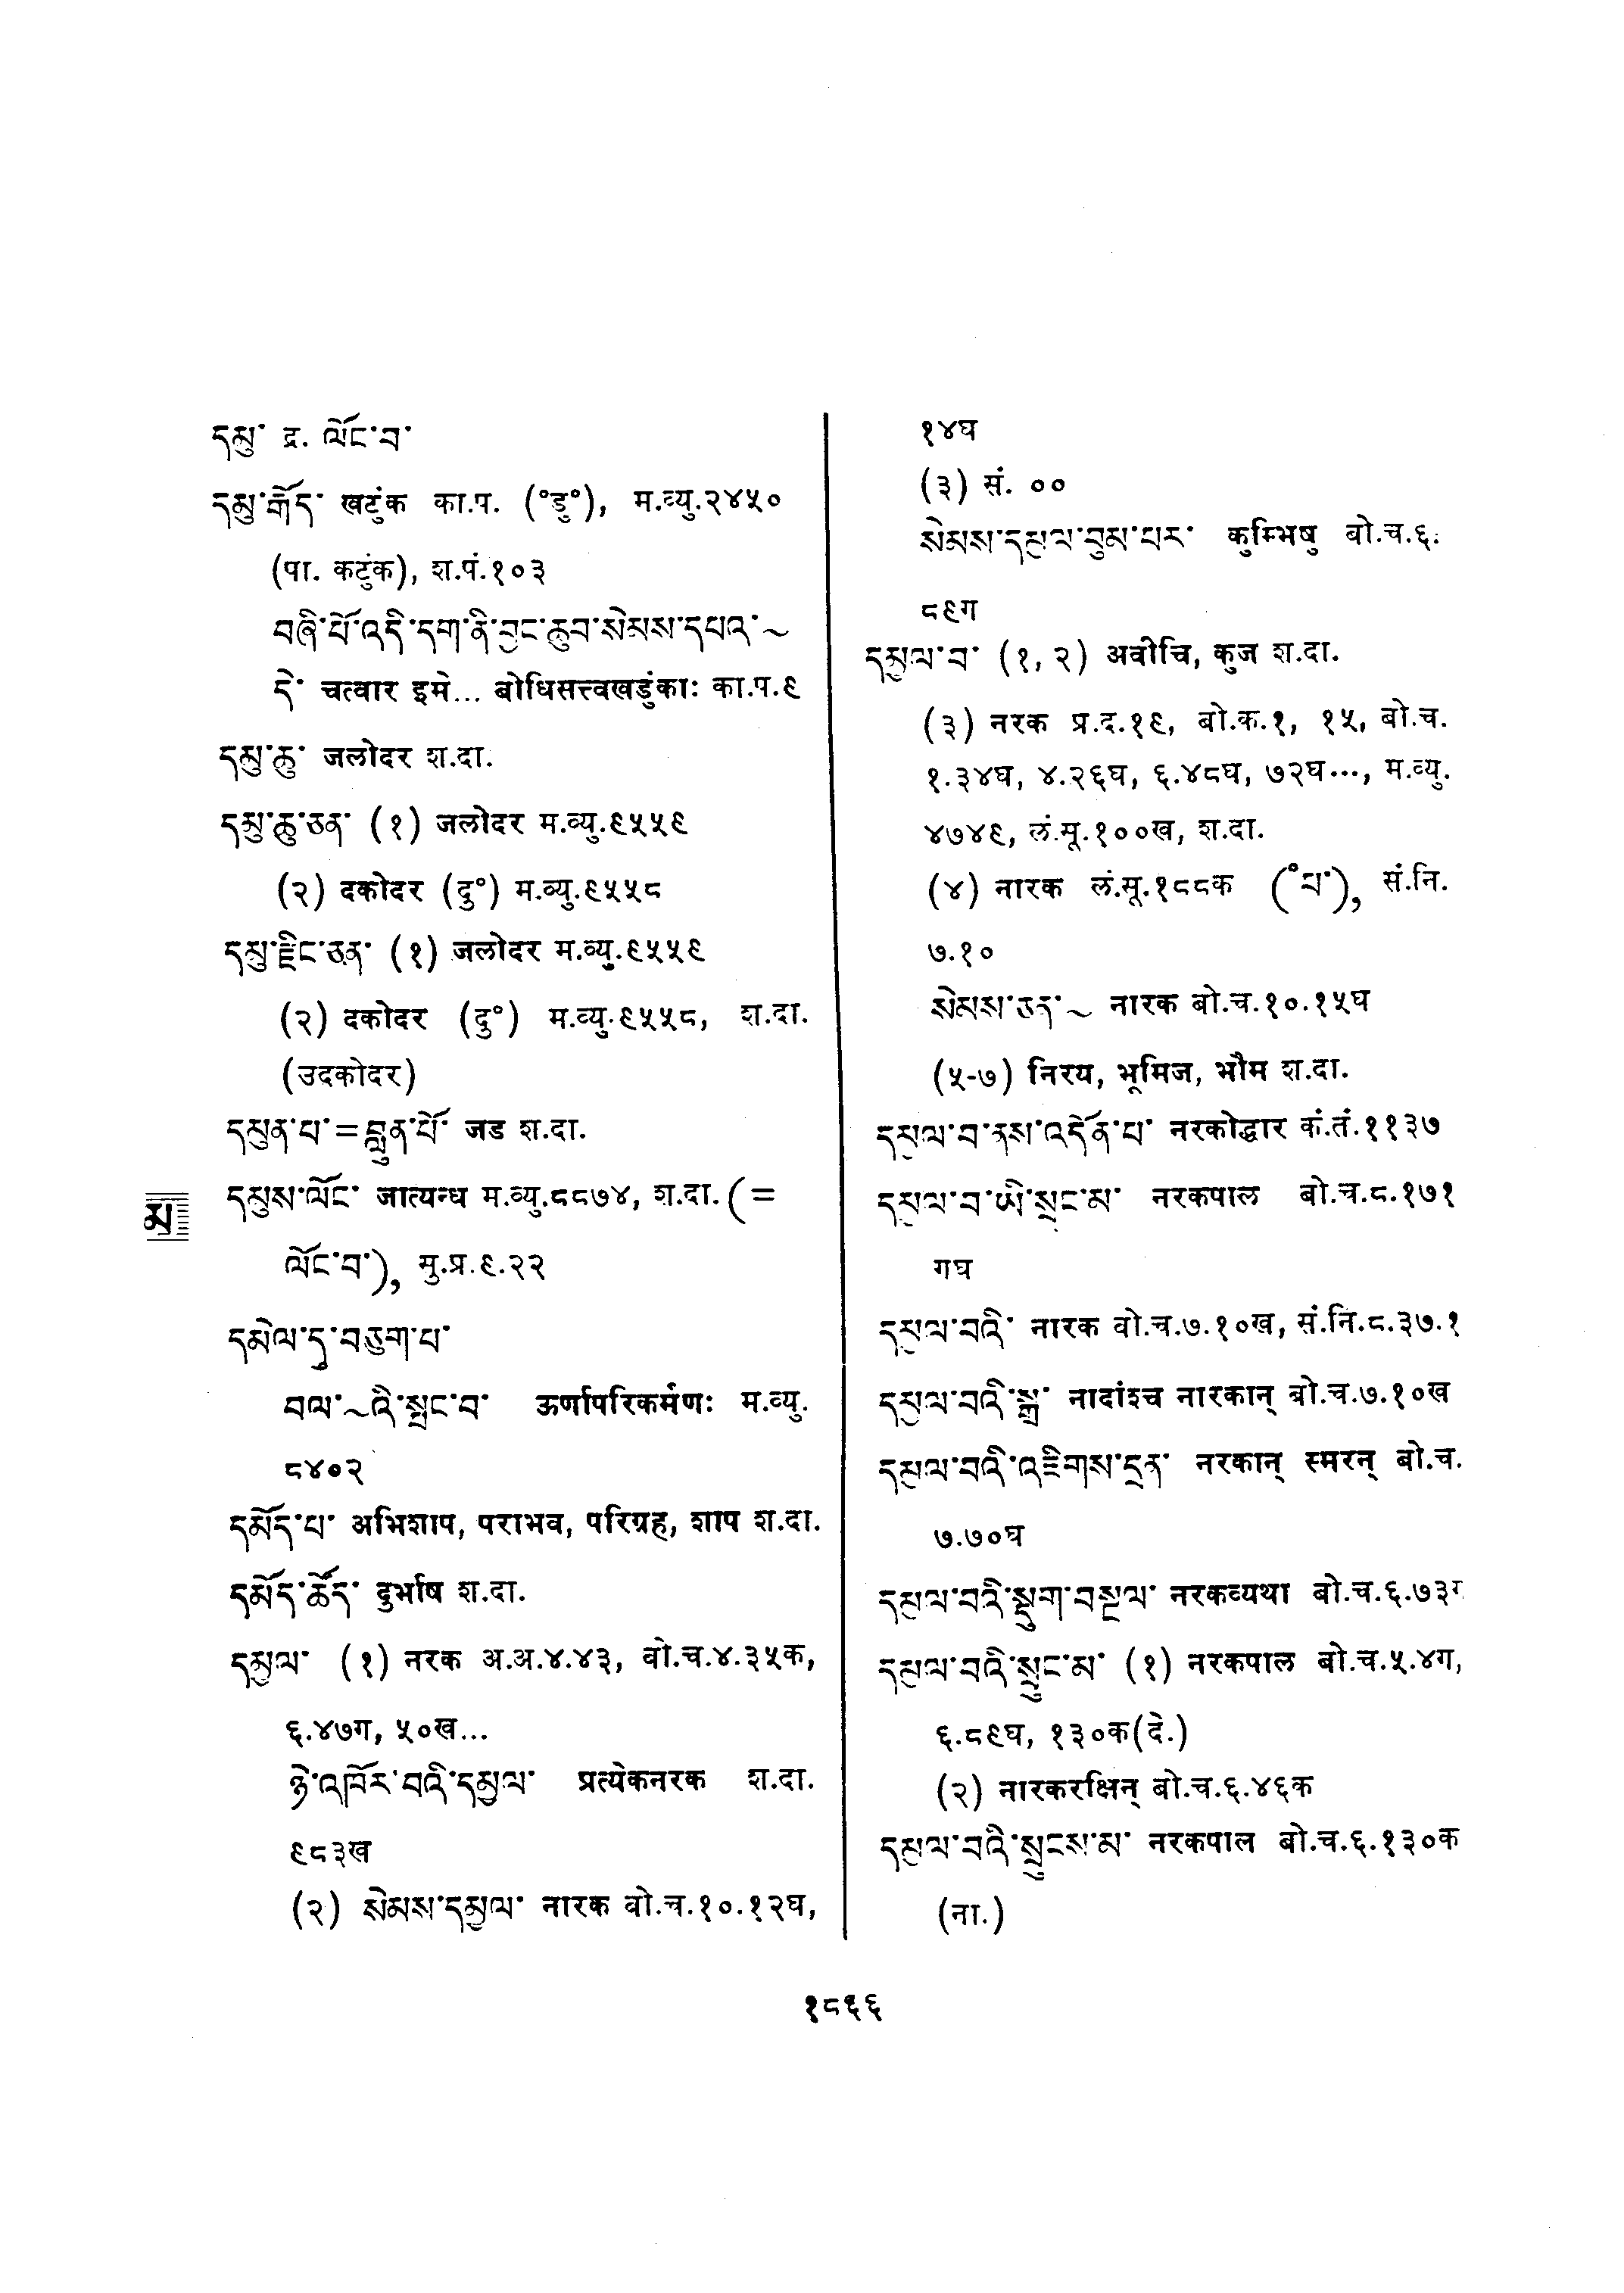 དམུ་ द्र. ལོང་བ་
དམུ་རྒོད་ खटुंक का.प. (°डु°), म.व्यु.२४५०
(पा. कटुंक), श.पं.१०३
བཞི་པོ་འདི་དག་ནི་བྱང་ཆུབ་སེམས་དཔའ་~
དེ་ चत्वार इमे... बोधिसत्त्वखडुंकाः का.प.९
དམུ་ཆུ་ जलोदर श.दा.
དམུ་ཆུ་ཅན་ (१) जलोदर म.व्यु.९५५९
(२) दकोदर (दु°) म.व्यु.९५५८
དམུ་རྫིང་ཅན་ (१) जलोदर म.व्यु.९५५९
(२) दकोदर (दु°) म.व्यु.९५५८, श.दा.
(उदकोदर)
དམུན་པ་=བླུན་པོ་ जड श.दा.
དམུས་ལོང་ जात्यन्ध म.व्यु.८८७४, श.दा.(=
ལོང་བ་), मु.प्र.९.२२
མ
དམེལ་དུ་བཅུག་པ་
བལ་~འི་སྤྲང་བ་ ऊर्णापरिकर्मणः म.व्यु.
८४०२
དམོད་པ་ अभिशाप, पराभव, परिग्रह, शाप श.दा.
དམོད་ཚོད་ दुर्भाष श.दा.
དམྱལ་ (१) नरक अ.अ.४.४३, बो.च.४.३५क,
६.४७ग, ५०ख...
ཉེ་འཁོར་བའི་དམྱལ་ प्रत्येकनरक श.दा.
९८३ख
(२) སེམས་དམྱལ་ नारक बो.च.१०.१२घ,
१४घ
(३) सं. ००
སེམས་དམྱལ་བུམ་པར་ कुम्भिषु बो.च.६.
८९ग
དམྱལ་བ་ (१, २) अवीचि, कुज श.दा.
(३) नरक प्र.द.१९, बो.क.१, १५, बो.च.
१.३४घ, ४.२६घ, ६.४८घ, ७२घ..., म.व्यु.
४७४९, लं.मू.१००ख, श.दा.
(४) नारक लं.मू.१८८क (°པ་), सं.नि.
७.१०
སེམས་ཅན་~ नारक बो.च.१०.१५घ
(५-७) निरय, भूमिज, भौम श.दा.
དམྱལ་བ་ནས་འདོན་པ་ नरकोद्धार कं.तं.११३७
དམྱལ་བ་ཡི་སྲང་མ་ नरकपाल बो.च.८.१७१
गघ
དམྱལ་བའི་ नारक बो.च.७.१०ख, सं.नि.८.३७.१
དམྱལ་བའི་སྒྲ་ नादांश्च नारकान् बो.च.७.१०ख
དམྱལ་བའི་འཇིགས་དྲན་ नरकान् स्मरन् बो.च.
७.७०घ
དམྱལ་བའི་སྡུག་བསྔལ་ नरकव्यथा बो.च.६.७३ग
དམྱལ་བའི་སྲུང་མ་ (१) नरकपाल बो.च.५.४ग,
६.८९घ, १३०क(दे.)
(२) नारकरक्षिन् बो.च.६.४६क
དམྱལ་བའི་སྲུངས་མ་ नरकपाल बो.च.६.१३०क
(ना.)
१८९६